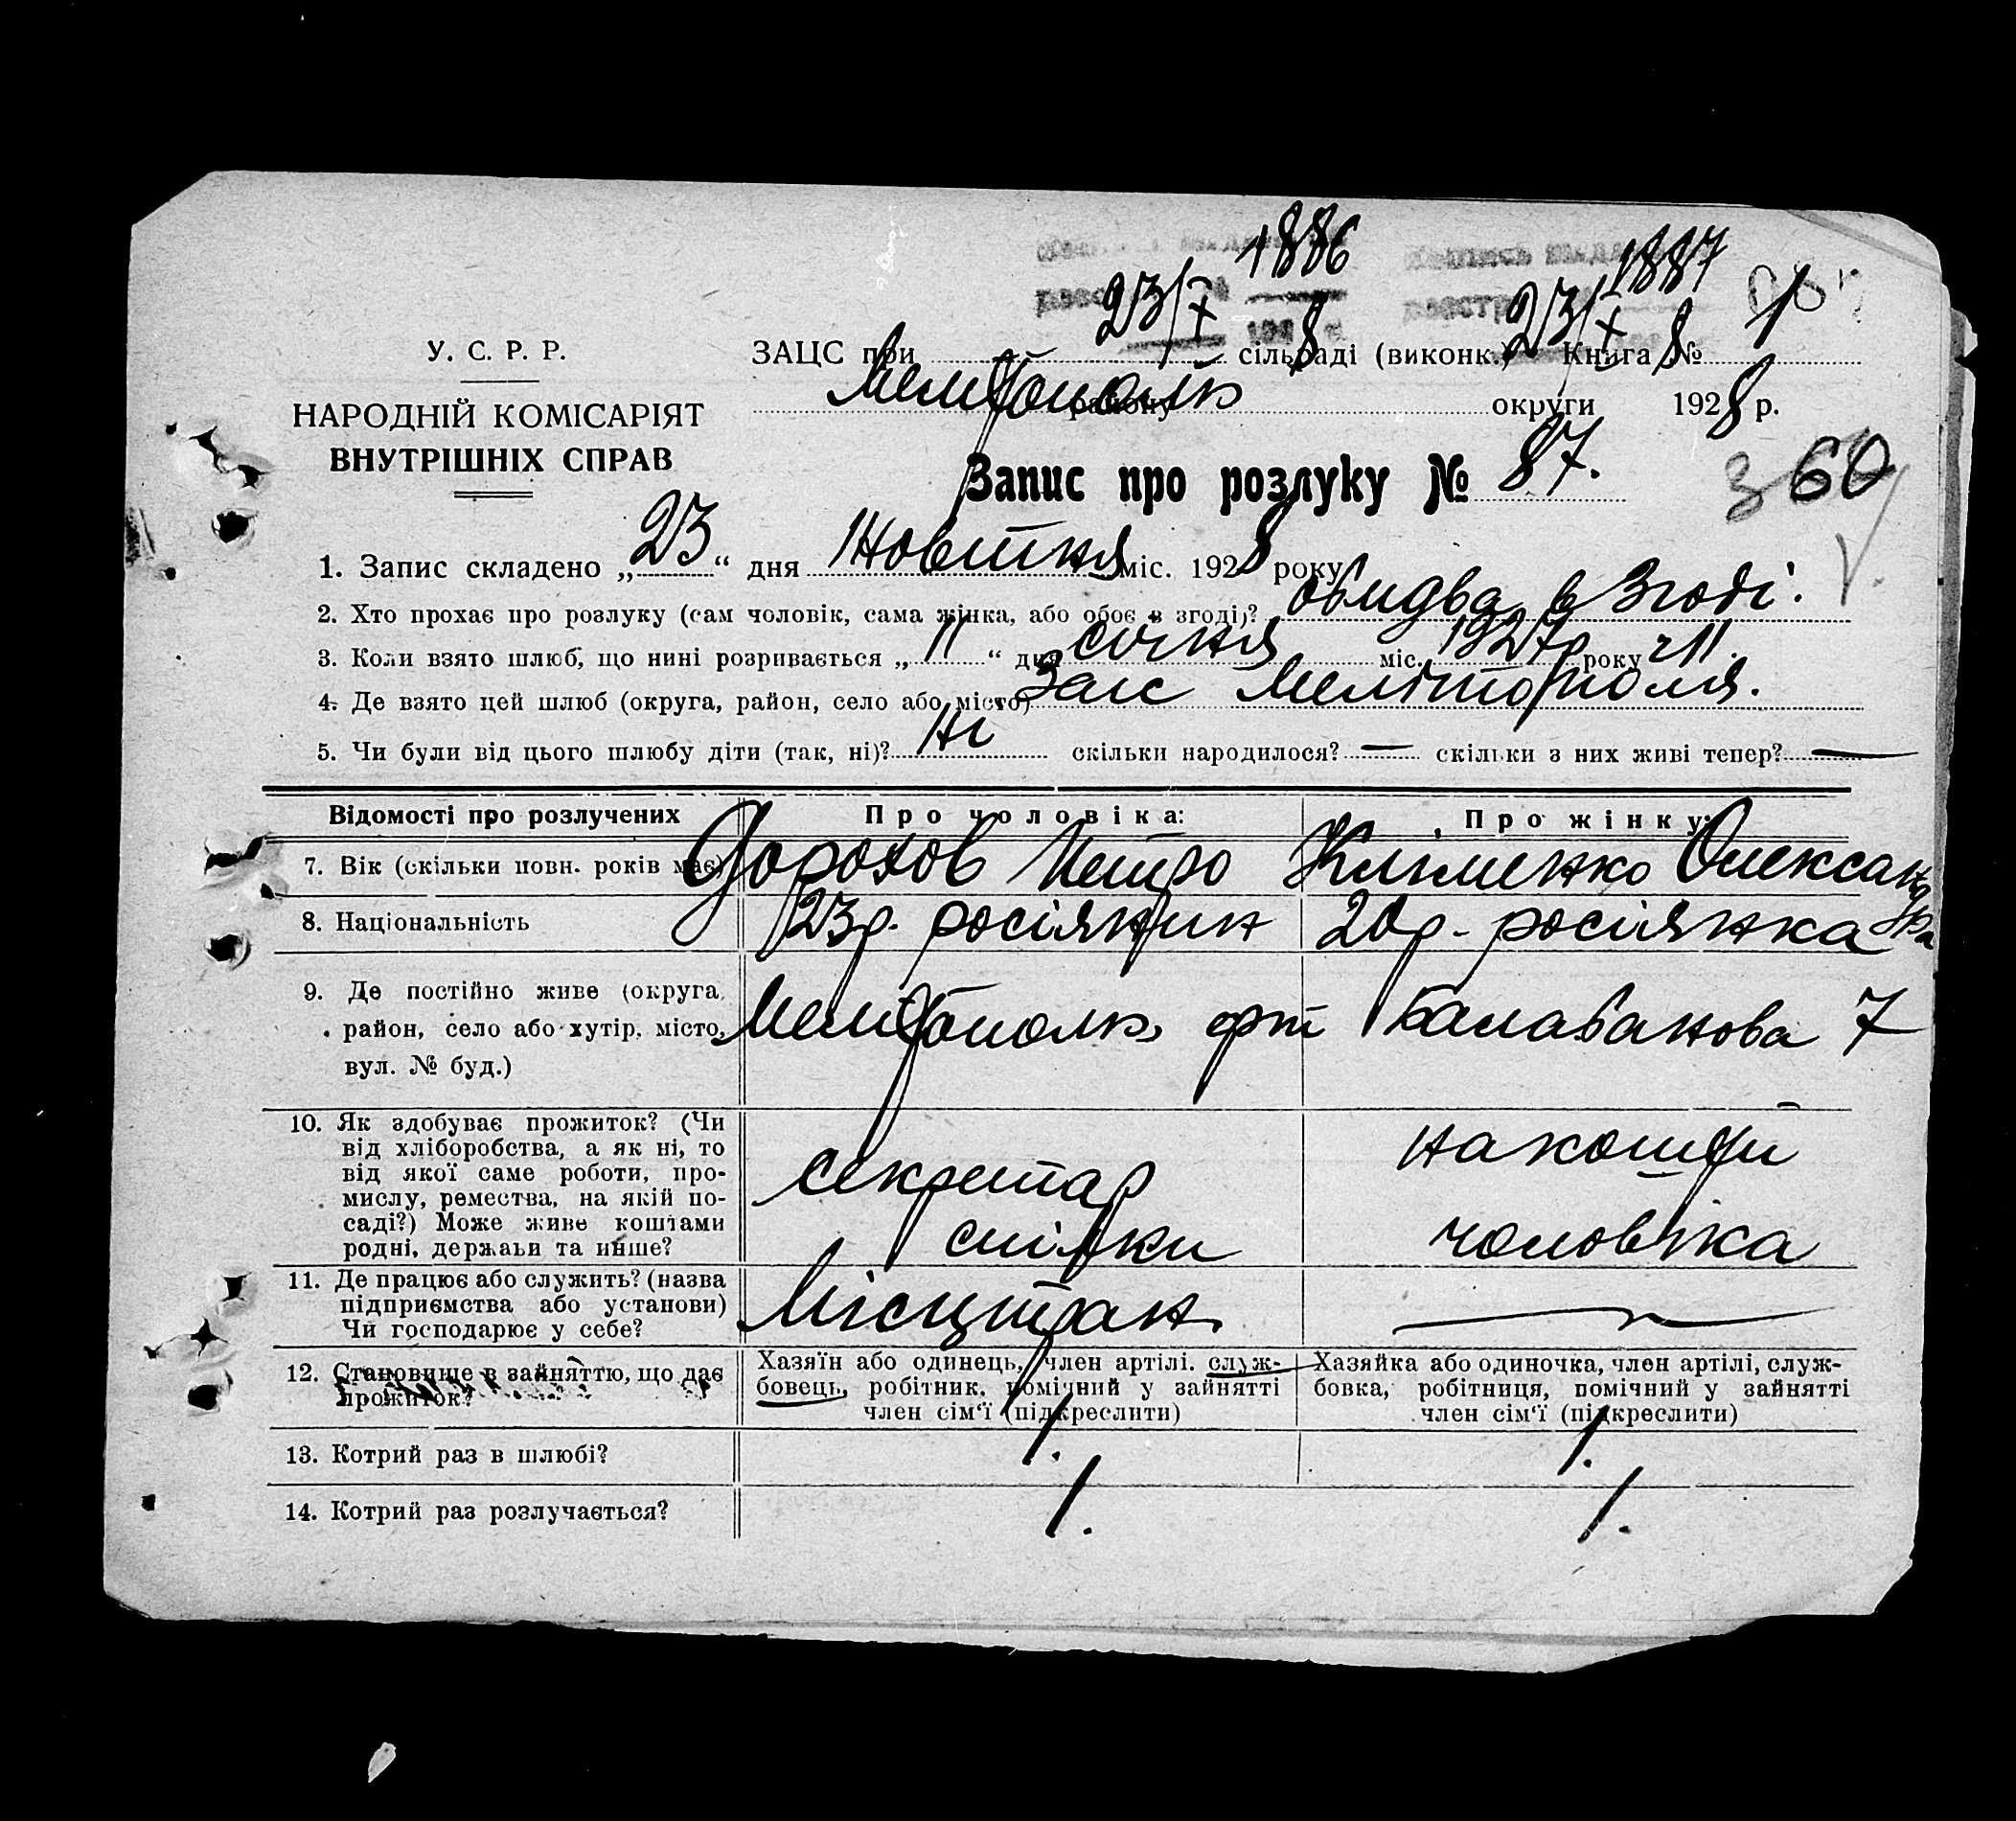 1886
1887
23/X
23/X
У. С. Р. Р.
НАРОДНІЙ КОМІСАРІЯТ
ВНУТРІШНІХ СПРАВ
ЗАЦС при сільраді (виконк.) Книга № 1
Мелітополь району округи 1928 р.
Запис про розлуку № 87.
360
1. Запис складено „23“ дня Жовтня міс. 1928 року
2. Хто прохає про розлуку (сам чоловік, сама жінка, або обоє в згоді)? обидва в згоді.
3. Коли взято шлюб, що нині розривається „11“ дня січня міс. 1927р року ч 11.
4. Де взято цей шлюб (округа, район, село або місто) Загс Мелітополя.
5. Чи були від цього шлюбу діти (так, ні)? Ні скільки народилося? — скільки з них живі тепер? —
Відомості про розлучених Про чоловіка: Про жінку:
7. Вік (скільки повн. років має) Дорохов Петро Кліменко Олександра
8. Національність 23р. росіянин 20р. росіянка
9. Де постійно живе (округа, район, село або хутір, місто, вул. № буд.) Мелітополь, Балабанова 7
10. Як здобуває прожиток? (Чи
від хліборобства, а як ні, то
від якої саме роботи, про-
мислу, ремества, на якій по-
саді?) Може живе коштами
родні, держави та инше?
секретар
спілки
на кошти
чоловіка
11. Де працює або служить? (назва
підприємства або установи)
Чи господарює у себе?
Місцтран. —
12. Становище в зайняттю, що дає
прожиток?
Хазяїн або одинець, член артілі, служ-
бовець, робітник, помічний у зайнятті
член сім'ї (підкреслити)
Хазяйка або одиночка, член артілі, служ-
бовка, робітниця, помічний у зайнятті
член сім'ї (підкреслити)
13. Котрий раз в шлюбі? 1. 1.
14. Котрий раз розлучається? 1. 1.